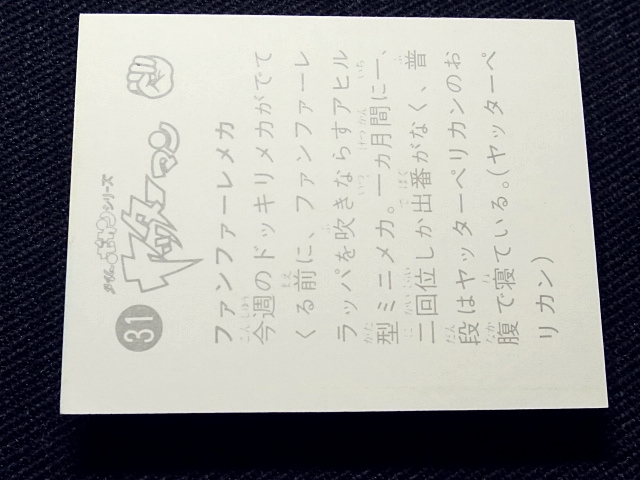 31
タイムボカンシリーズ
ヤッターマン
ファンファーレメカ
今週のドッキリメカがでて
くる前に、ファンファーレ
ラッパを吹きならすアヒル
型ミニメカ。一カ月間に一、
二回位しか出番がなく、普
段はヤッターペリカンのお
腹で寝ている。(ヤッターペ
リカン)